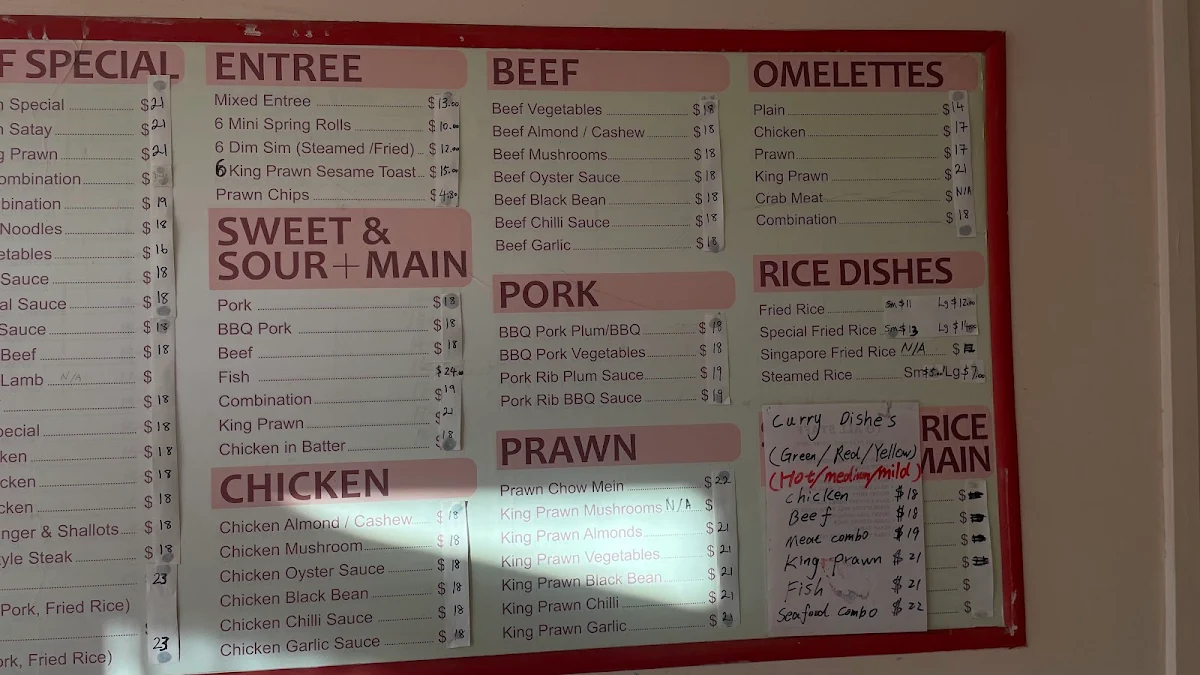 F SPECIAL
n Special $21
n Satay $21
g Prawn $21
ombination $
bination $19
Noodles $18
etables $16
Sauce $18
al Sauce $18
Sauce $18
Beef $18
Lamb N/A $
$18
pecial $18
ken $18
cken $18
cken $18
nger & Shallots $18
tyle Steak $18
23
Pork, Fried Rice)
23
ork, Fried Rice)
ENTREE
Mixed Entree $13.00
6 Mini Spring Rolls $10.00
6 Dim Sim (Steamed /Fried) $12.00
6 King Prawn Sesame Toast $15.00
Prawn Chips $4.80
SWEET &
SOUR+MAIN
Pork $18
BBQ Pork $18
Beef $18
Fish $24.00
Combination $19
King Prawn $21
Chicken in Batter $18
CHICKEN
Chicken Almond / Cashew $18
Chicken Mushroom $18
Chicken Oyster Sauce $18
Chicken Black Bean $18
Chicken Chilli Sauce $18
Chicken Garlic Sauce $18
BEEF
Beef Vegetables $18
Beef Almond / Cashew $18
Beef Mushrooms $18
Beef Oyster Sauce $18
Beef Black Bean $18
Beef Chilli Sauce $18
Beef Garlic $18
PORK
BBQ Pork Plum/BBQ $18
BBQ Pork Vegetables $18
Pork Rib Plum Sauce $19
Pork Rib BBQ Sauce $19
PRAWN
Prawn Chow Mein $22
King Prawn Mushrooms N/A $
King Prawn Almonds $21
King Prawn Vegetables $21
King Prawn Black Bean $21
King Prawn Chilli $21
King Prawn Garlic $21
OMELETTES
Plain $14
Chicken $17
Prawn $17
King Prawn $21
Crab Meat $N/A
Combination $18
RICE DISHES
Fried Rice Sm $11 Lg $12.00
Special Fried Rice Sm $13 Lg $14.00
Singapore Fried Rice N/A $
Steamed Rice Sm Lg $7.00
RICE
MAIN
$
$
$
$
$
$
Curry Dishes
(Green/Red/Yellow)
(Hot/medium/mild)
chicken $18
Beef $18
Meat combo $19
King prawn $21
Fish $21
Seafood combo $22